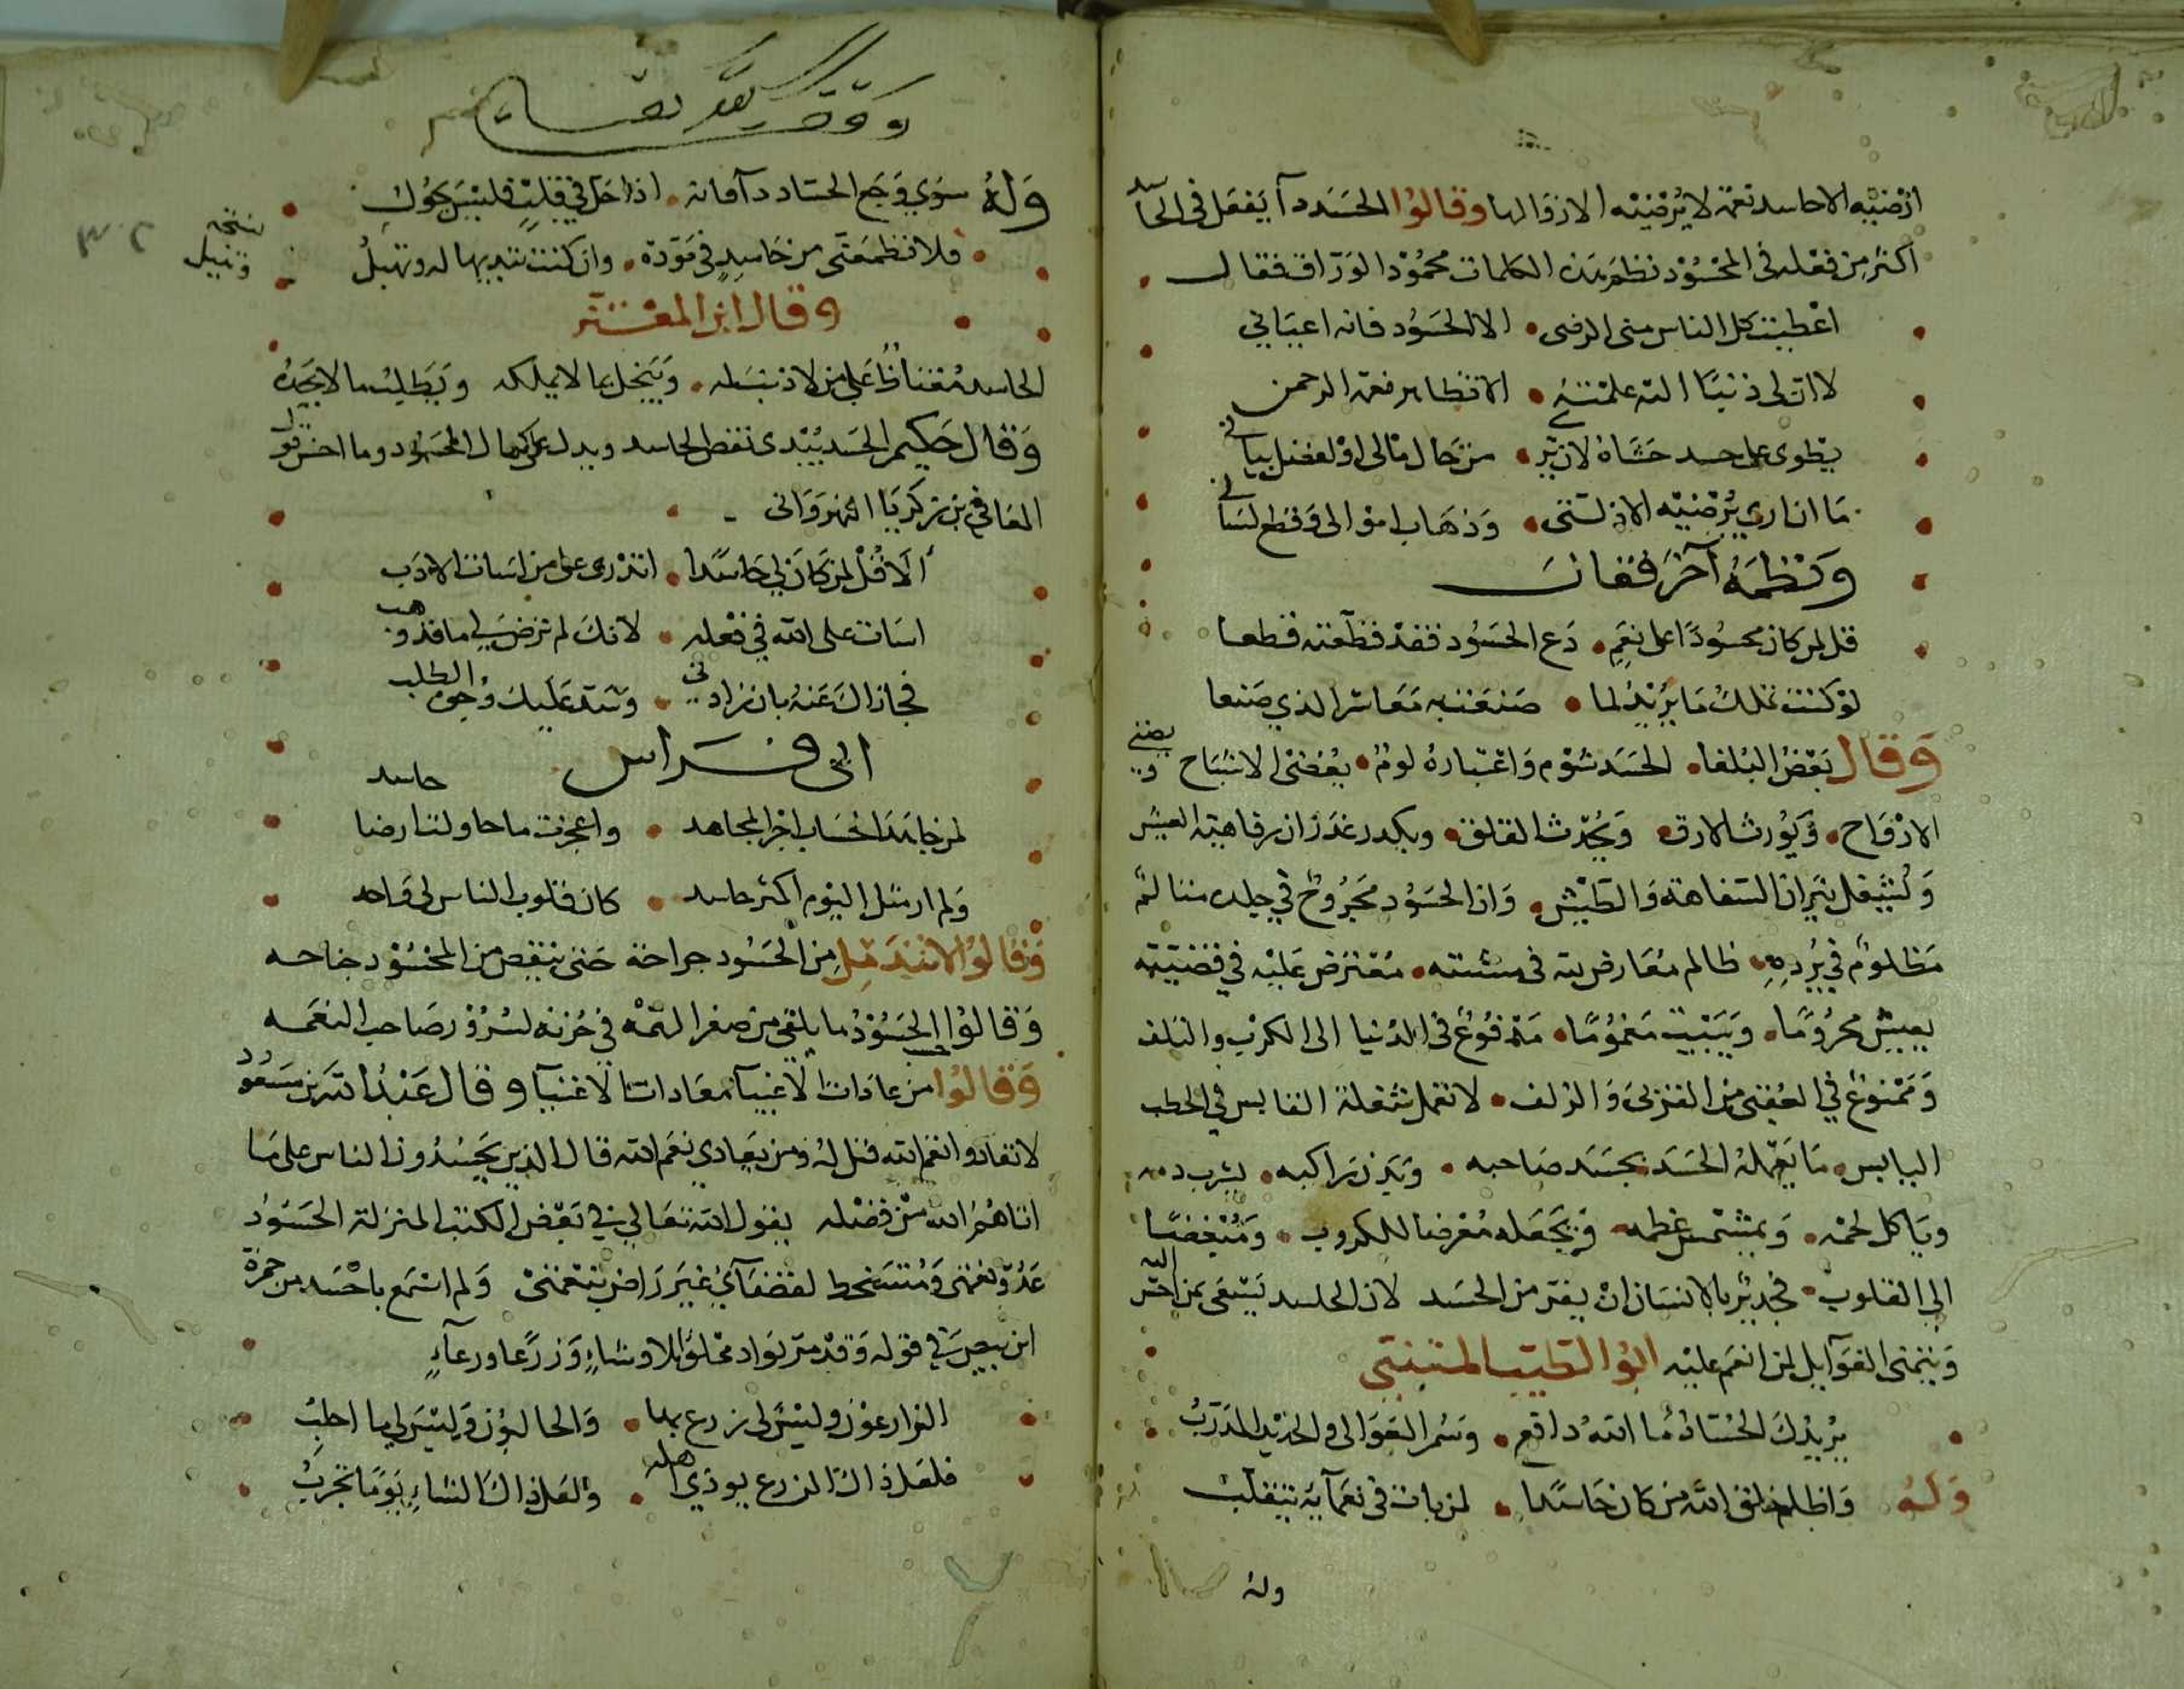 ارضيه الا حاسد نعمة لا يرضيه الا زوالها وقالوا الحسد دآ يفعل فى الحاسد
اكثر من فعله فى المحسود نظم هذه الكلمات محمود الوراق فقال
اعطيت كل الناس منى الرضى • الا الحسود فانه اعيانى
لا ان لى ذنبا اليه علمته • الا تظاهر نعمة الرحمن
يطوى على حسد حشاه لان يرى • من حال مالى او لفضل بيانى
ما ان ارى يرضيه الا ذلتى • وذهاب اموالى وقطع لسانى
ونظمه آخر فقال
قل لمن كان محسودا على نعم • دع الحسود فقد قطعته قطعا
لو كنت تملك ما يريد لما • صنعت به معاشر الذي صنعا
وقال بعض البلغا • الحسد شؤم واعتباره لوم • يضنى الاشباح ويضنى
الارواح • ويورث الارق • ويحدث القلق • ويكدر غدران رفاهية العيش
ويشعل نيران السفاهة والطيش • وان الحسود مجروح في جلده سالم
مظلوم في برده • ظالم معارض لله فى مشيته • معترض عليه في قضيته
يعيش محروما • ويبيت مغموما • مدفوع فى الدنيا الى الكرب والتلف
وممنوع في العقبى من القربى والزلف • لا تعمل شعلة القابس في الحطب
اليابس • ما يعمله الحسد بجسد صاحبه • وبدن راكبه • يشرب دمه
وياكل لحمه • ويهشم عظمه • ويجعله معرضا للكروب • ومبغضا
الى القلوب • فجدير بالانسان ان يفر من الحسد لان الحاسد يسعى بمن احسن اليه
ويتمنى الغوآيل لمن انعم عليه ابو الطيب المتنبى
يريد بك الحساد ما الله دافع • وسمر العوالى والحديد المذرب
وله واظلم خلق الله من كان حاسدا • لمن بات فى نعمآيه يتقلب
وله
وله سوي وجع الحساد دآ فانه • اذا حل في قلب فليس يحول
• فلا تطمعن من حاسد فى مودة • وان كنت تبديها له وتنيل
نسخه وتنيل
وقال ابن المعتز
الحاسد مغتاظ على من لا ذنب له • ويبخل بما لا يملكه ويطلب ما لا يجده
وقال حكيم الحسد يبدى نقص الحاسد ويدل على كمال المحسود وما احسن قول
المعافى بن زكريا النهروانى
ألا قل لمن كان لي حاسدا • اتدرى على من اسات الادب
اسات على الله في فعله • لانك لم ترض لي ما قد وهب
فجازاك عنه بان زادنى • وسد عليك وجوه الطلب
ابى فراس
لمن جاهد الحساد اجر المجاهد • واعجزت ما حاولت ارضا حاسد
ولم ار مثل اليوم اكثر حاسد • كان قلوب الناس لى واحد
وقالوا لا تندمل من الحسود جراحة حتى ينقص من المحسود جناحه
وقالوا الحسود ما يلقى من صغر الهمة في حزنه لسرور صاحب النعمه
وقالوا من عادات الاغبيآ معادات الاغنيآ وقال عبد الله بن مسعود
لا تعادوا نعم الله قيل له ومن يعادي نعم الله قال الذين يحسدون الناس على ما
اتاهم الله من فضله يقول الله تعالى في بعض الكتب المنزلة الحسود
عدو نعمتى ومتسخط لقضآي غير راض بنعمتى ولم اسمع باحسد من حمزة
ابن بيض في قوله وقد مر بواد مخلو ابلا وشاء وزرعا ورعآء
الزارعون وليس لى زرع بها • والحالبون وليس لي ما احلب
فلعل ذاك الزرع يوذي اهله • ولعل ذاك الشاء يوما تجرب